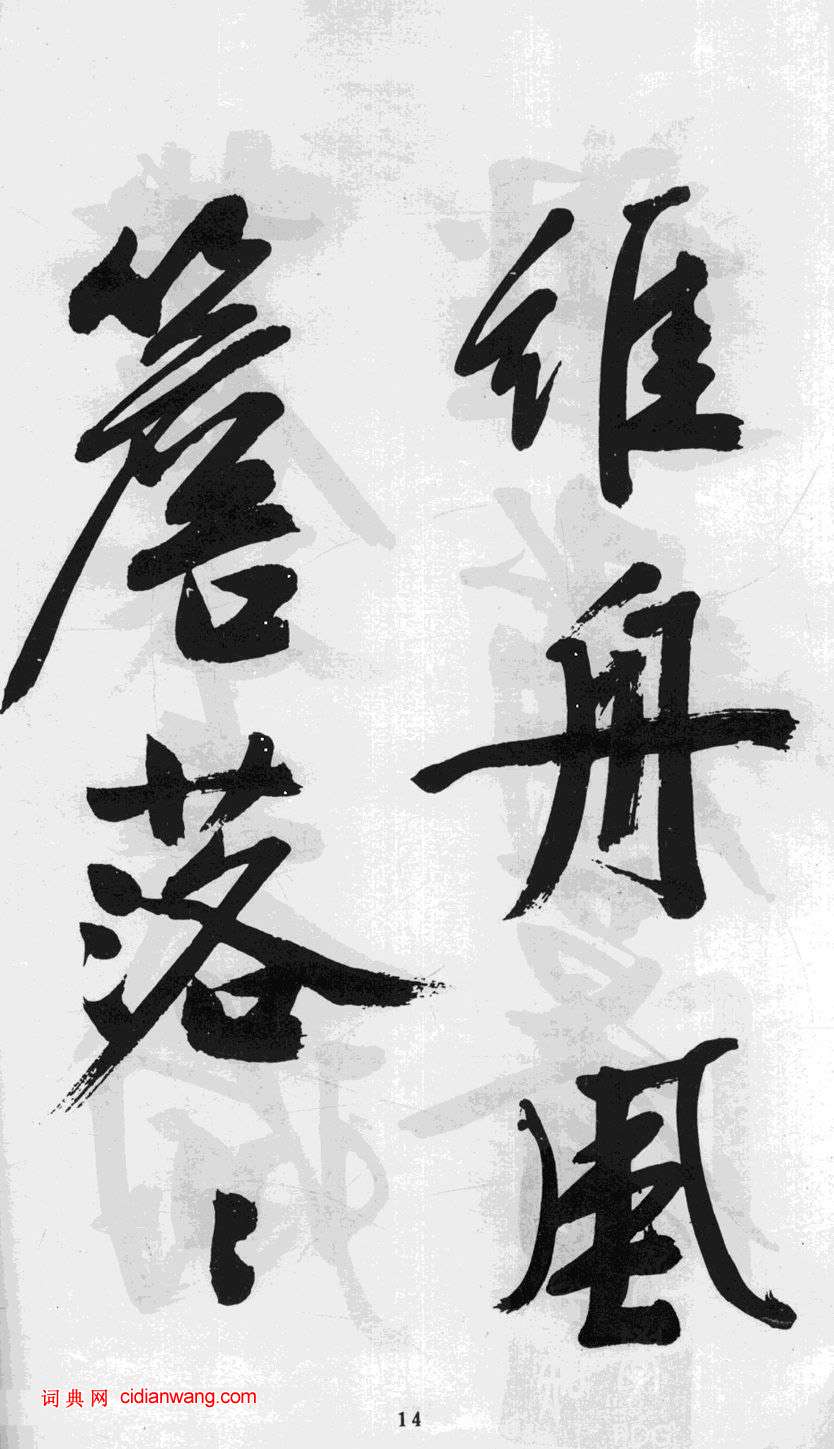 維舟風
簷落〻
词典网 cidianwang.com
14